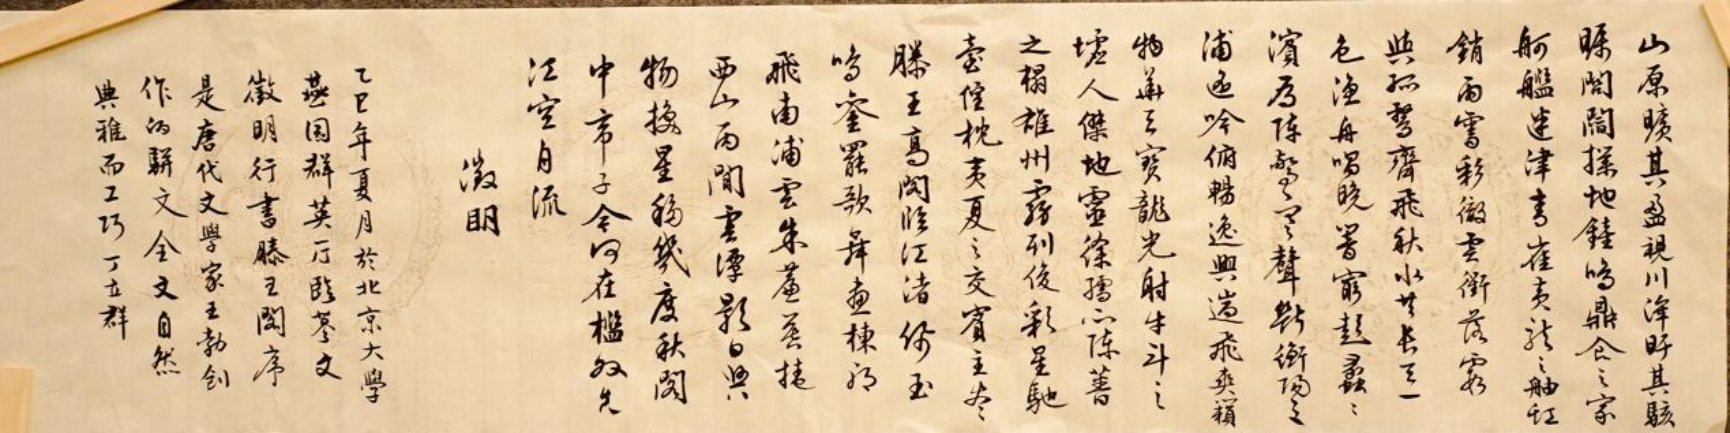 山原曠其盈視川澤盱其駭
矚閭閻撲地鐘鳴鼎食之家
舸艦迷津青雀黃龍之舳虹
銷雨霽彩徹雲衢落霞
與孤鶩齊飛秋水共長天一
色漁舟唱晚響窮彭蠡之
濱雁陣驚寒聲斷衡陽之
浦遙吟俯暢逸興遄飛爽籟
物華天寶龍光射牛斗之
墟人傑地靈徐孺下陳蕃
之榻雄州霧列俊彩星馳
臺隍枕夷夏之交賓主盡
滕王高閣臨江渚佩玉
鳴鑾罷歌舞畫棟朝
飛南浦雲朱簾暮捲
西山雨閒雲潭影日與
物換星移幾度秋閣
中帝子今何在檻外長
江空自流
徵明
乙巳年夏月於北京大學
燕園群英廳臨摹文
徵明行書滕王閣序
是唐代文學家王勃創
作的駢文全文自然
典雅而工巧 丁立群